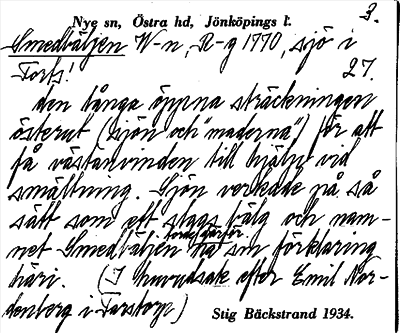 Nye sn, Östra hd, Jönköpings l. 3.
Smedbäljen W-n, R-g 1770, sjö i
Torfs! 27.
den långa öppna sträckningen
österut (sjön och "maderna") för att
få västanvinden till hjälp vid
smältning. Sjön verkade på så
sätt som ett slags bälg och nam-
net Smedbäljen torde därför ha sin förklaring
häri. (I huvudsak efter Emil Nor-
denberg i Farstorp)
Stig Bäckstrand 1934.